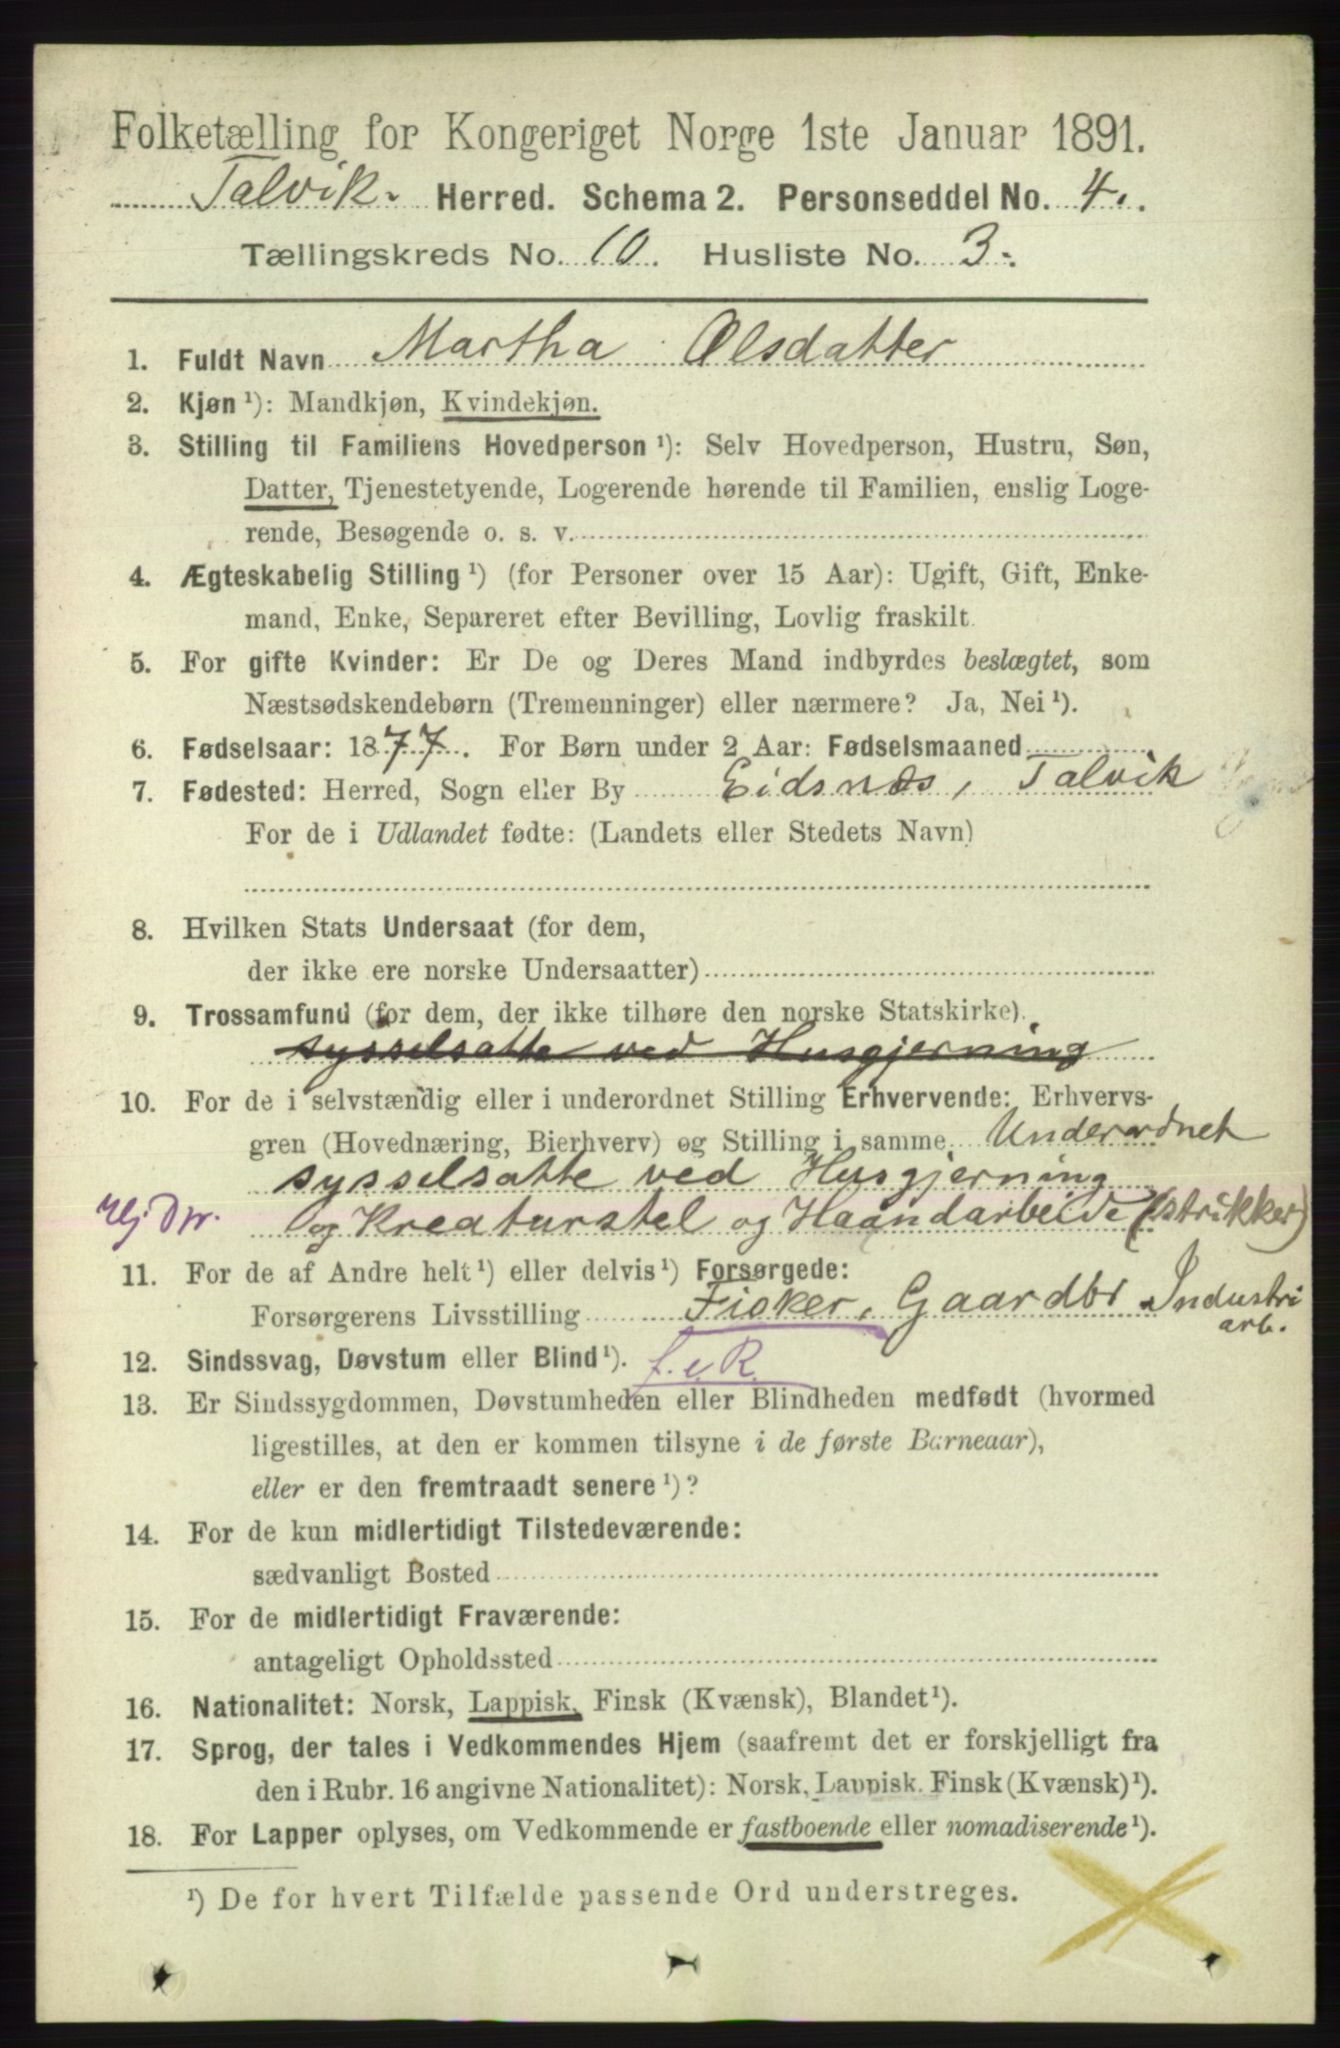 Folketælling for Kongeriget Norge 1ste Januar 1891.
Talvik. Herred. Schema 2. Personseddel No. 4.
Tællingskreds No. 10. Husliste No. 3.
1. Fuldt Navn Martha Olsdatter
2. Kjøn ¹): Mandkjøn, Kvindekjøn.
3. Stilling til Familiens Hovedperson ¹): Selv Hovedperson, Hustru, Søn,
Datter, Tjenestetyende, Logerende hørende til Familien, enslig Loge-
rende, Besøgende o. s. v.
4. Ægteskabelig Stilling ¹) (for Personer over 15 Aar): Ugift, Gift, Enke-
mand, Enke, Separeret efter Bevilling, Lovlig fraskilt.
5. For gifte Kvinder: Er De og Deres Mand indbyrdes beslægtet, som
Næstsødskendebørn (Tremenninger) eller nærmere? Ja, Nei ¹).
6. Fødselsaar: 1877. For Børn under 2 Aar: Fødselsmaaned
7. Fødested: Herred, Sogn eller By Eidsnæs, Talvik
For de i Udlandet fødte: (Landets eller Stedets Navn)
8. Hvilken Stats Undersaat (for dem,
der ikke ere norske Undersaatter)
9. Trossamfund (for dem, der ikke tilhøre den norske Statskirke).
sysselsatte ved Husgjerning
10. For de i selvstændig eller i underordnet Stilling Erhvervende: Erhvervs-
gren (Hovednæring, Bierhverv) og Stilling i samme Underordnet
sysselsatte ved Husgjerning
og Kreaturstel og Haandarbeide (strikker)
11. For de af Andre helt ¹) eller delvis ¹) Forsørgede:
Forsørgerens Livsstilling Fisker, Gaardbr Industri
arb.
12. Sindssvag, Døvstum eller Blind ¹). f. e R.
13. Er Sindssygdommen, Døvstumheden eller Blindheden medfødt (hvormed
ligestilles, at den er kommen tilsyne i de første Barneaar),
eller er den fremtraadt senere ¹)?
14. For de kun midlertidigt Tilstedeværende:
sædvanligt Bosted
15. For de midlertidigt Fraværende:
antageligt Opholdssted
16. Nationalitet: Norsk, Lappisk, Finsk (Kvænsk), Blandet ¹).
17. Sprog, der tales i Vedkommendes Hjem (saafremt det er forskjelligt fra
den i Rubr. 16 angivne Nationalitet): Norsk, Lappisk, Finsk (Kvænsk) ¹).
18. For Lapper oplyses, om Vedkommende er fastboende eller nomadiserende ¹).
¹) De for hvert Tilfælde passende Ord understreges.